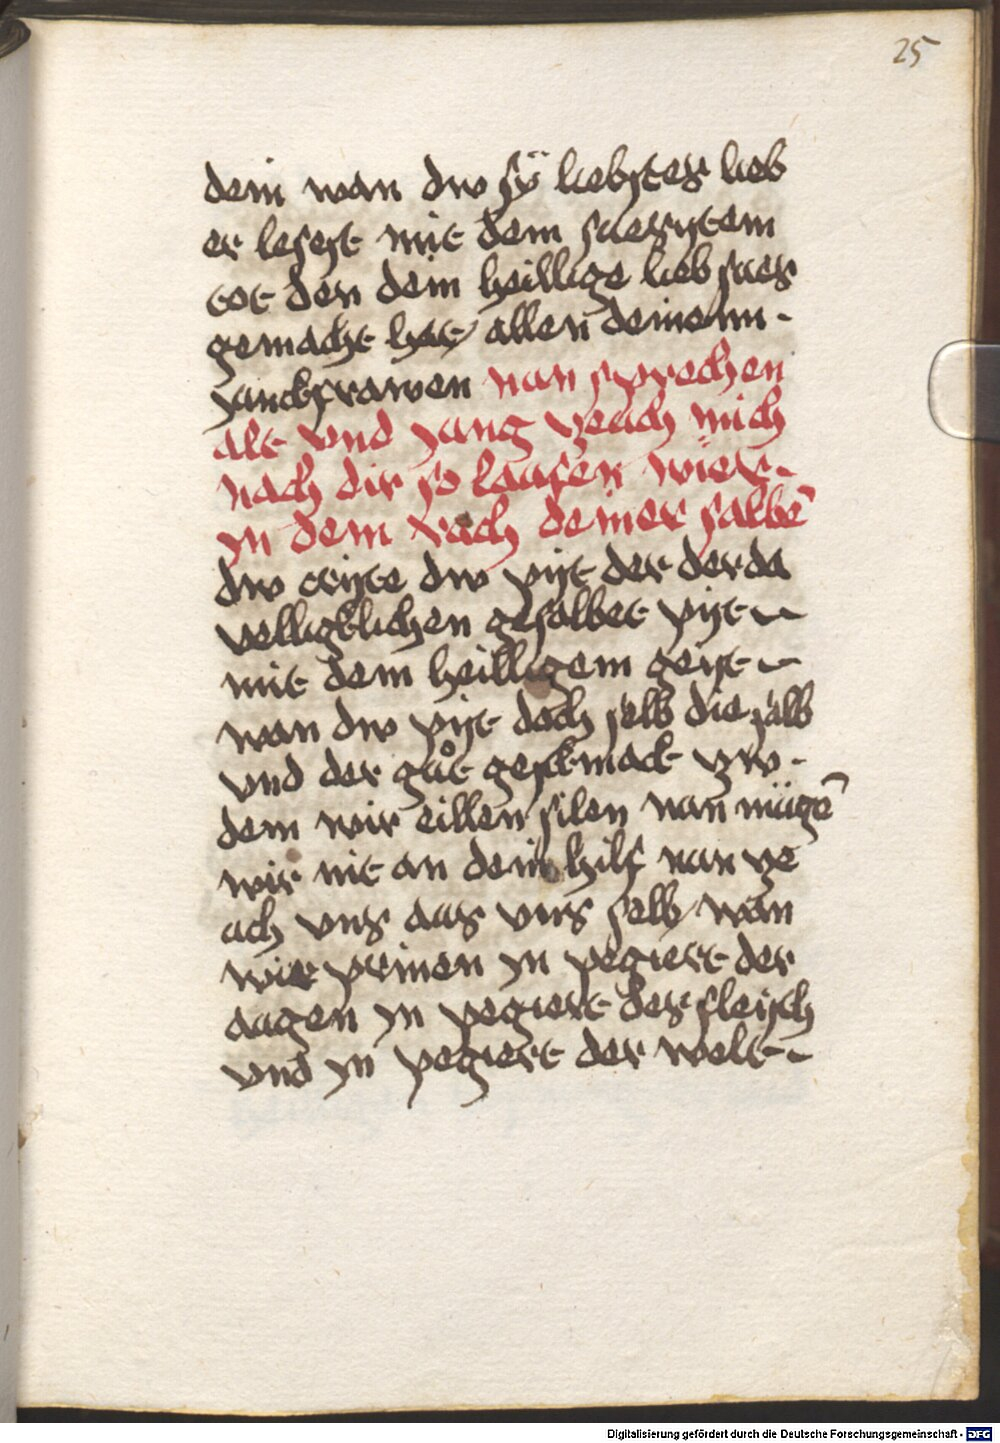 25
dein wan dw sÿ liebster lieb
er lesest mit dem suerystem
tot den dein heillige lieb sues
gemacht hat allen deinenn -
junckfrawen nan sprechen
alt vnd jung zeuch mich
nach dir so laufen wier -
yn dem rach deiner salbē
dw criste dw pist der der da
velligklichen gesalbet pist -
mit dem heilligem geist -
wan dw pist doch selb die salb
vnd der guͦt geschmack zw -
dem wir eillen sŭlen nan mügē
wir nit an dein hilf nan ze
uch vns aus vns selb wan
wir prinen yn pegiert der
augen yn pegiert des fleisch
vnd yn pegiert der welt -
Digitalisierung gefördert durch die Deutsche Forschungsgemeinschaft - DFG